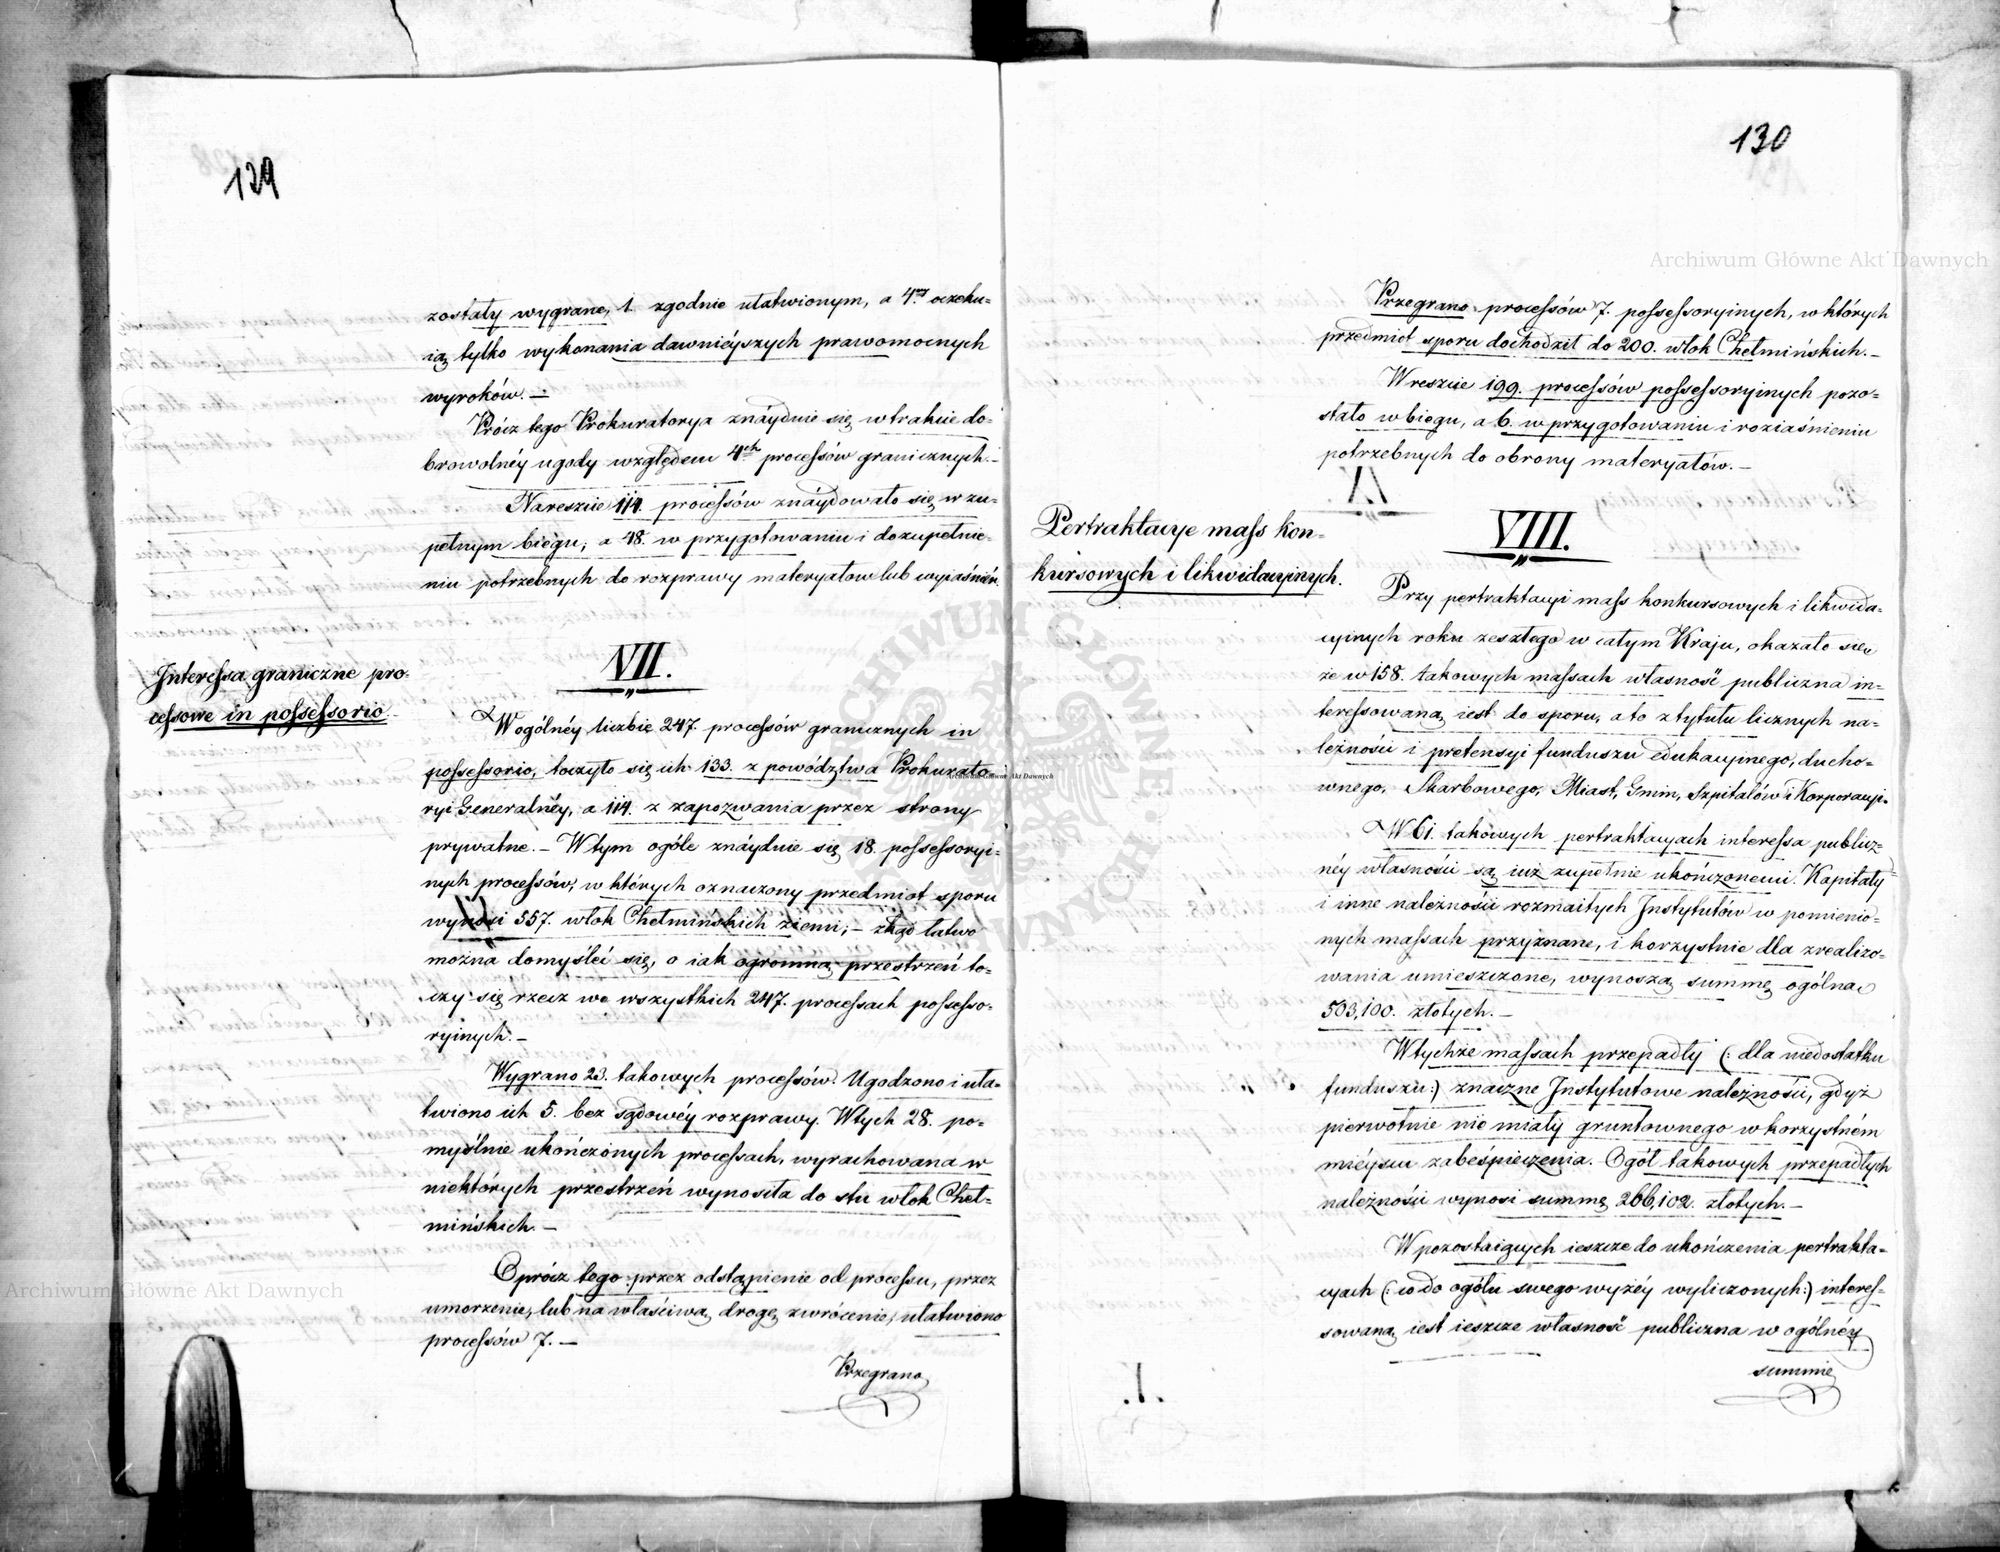 129
zostały wygrane, 1. zgodnie ułatwionym, a 4ry oczeku-
ią tylko wykonania dawnieyszych prawomocnych
wyroków. –
Prócz tego Prokuratorya znáydnie się w trakcie do-
browolnéy ugody względem 4ch processów granicznych. –
Nareszcie 114. processów znáydowało się w zu-
pełnym biegu; a 48. w przygotowaniu i dozupełnie-
niu potrzebnych do rozprawy materyałow lub wyiaśnień.
VII.
Interessa graniczne pro-
cessowe in possessorio.
W ogólnéy liczbie 247. processów granicznych in
possessorio, toczyło się ich 133. z powództwa Prokurato-
ryi Generalnéy, a 114. z zapozwania przez strony
prywatne. – W tym ogóle znáydnie się 18. possessoryi-
nych processów, w których oznaczony przedmiot sporu
wynosi 557. włok Chełmińskich ziemi; – zkąd łatwo
można domyśleć się, o iak ogromną przestrzeń to-
czy się rzecz we wszystkich 247. processach possesso-
ryinych. –
Wygrano 23. takowych processów. Ugodzono i uła-
twiono ich 5. bez sądowéy rozprawy. W tych 28. po-
myślnie ukończonych processach, wyrachowana w
niektórych przestrzeń wynosiła do stu włok Cheł-
mińskich. –
Oprócz tego przez odstąpienie od processu, przez
umorzenie, lub na właściwą drogę zwrócenie, ułatwiono
processów 7. –
Przegrano
130
Przegrano processów 7. possessoryinych, w których
przedmiot sporu dochodził do 200. włok Chełmińskich. –
Wreszcie 199. processów possessoryinych pozo-
stało w biegu, a 6. w przygotowaniu i roziaśnieniu
potrzebnych do obrony materyałów. –
VIII.
Pertraktacye mass kon-
kursowych i likwidacyinych.
Przy pertraktacyi mass konkursowych i likwida-
cyinych roku zeszłego w całym Kraju, okazało się
że w 158. takowych massach własność publiczna in-
teressowaną iest do sporu, a to z tytułu licznych na-
leżności i pretensyi funduszu edukacyinego, ducho-
wnego, Skarbowego, Miast, Gmin, Szpitalów i Korporacyi.
W 61. takowych pertraktacyach interessa publicz-
néy własności są iuż zupełnie ukończonemi. Kapitały
i inne należności rozmaitych Instytutów w pomienio-
nych massach przyznane, i korzystnie dla zrealizo-
wania umieszczone, wynoszą summę ogólną
503,100. złotych. –
W tychże massach przepadły (: dla niedostatku
funduszu :) znaczne Instytutowe należności, gdyż
pierwotnie nie miały gruntownego w korzystném
mieyscu zabespieczenia. Ogół takowych przepadłych
należności wynosi summę 266,102. złotych. –
W pozostaiących ieszcze do ukończenia pertrakta-
cyach (: co do ogółu swego wyżéy wyliczonych :) interes-
sowaną iest ieszcze własność publiczna w ogólnéy
summie
Archiwum Główne Akt Dawnych
Archiwum Główne Akt Dawnych
Archiwum Główne Akt Dawnych
ARCHIWUM GŁÓWNE AKT DAWNYCH